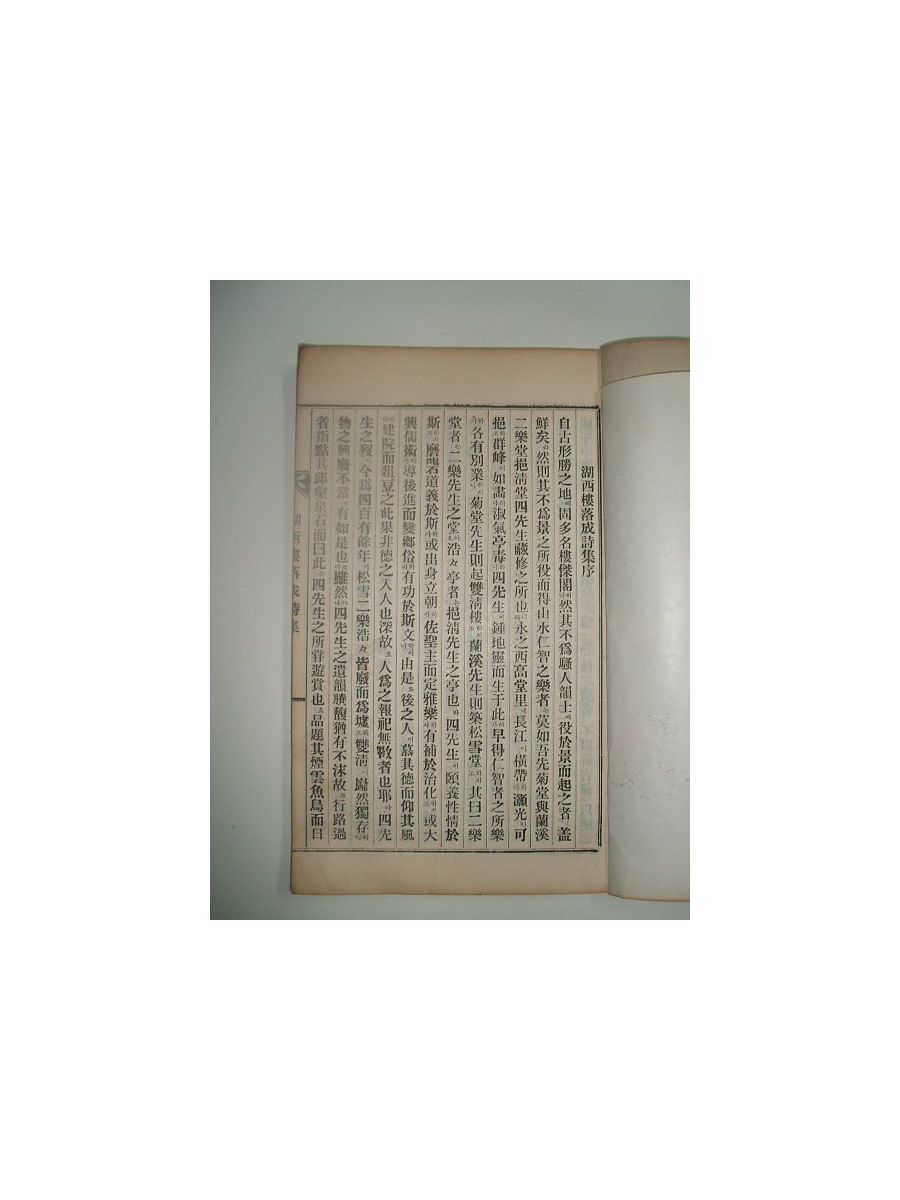 湖西樓落成詩集序
自古形勝之地에固多名樓傑閣이然其不爲騷人韻士에役於景而起之者盖
鮮矣라然則其不爲景之所役而得山水仁智之樂者는莫如吾先菊堂與蘭溪
二樂堂挹淸堂四先生藏修之所也니라永之西高堂里에長江이橫帶하야灝光이可
挹하고群峰이如畵하야淑氣亭毒四先生이鍾地靈而生于此하사早得仁智者之所樂
하사各有別業하시니菊堂先生則起雙淸樓하시고蘭溪先生則築松雪堂하시고其曰二樂
堂者는二樂先生之堂이오浩々亭者는挹淸先生之亭也라四先生이頤養性情於
斯하시며磨礱道義於斯하사或出身立朝하사佐聖主而定雅樂하사有補於治化하시며或大
興儒術하사導後進而變鄕俗하사有功於斯文하시니由是로後之人이慕其德而仰其風
하야建院而俎豆之此果非德之入人也深故로人爲之報祀無斁者也耶아四先
生之歿今爲四百有餘年에松雪二樂浩々皆廢而爲墟하고雙淸巋然獨存하니
物之興廢不常有如是也로다雖然이나四先生之遺韻賸馥猶有不沬故로行路過
者指點其邱壑泉石而曰此四先生之所嘗遊賞也로品題其煙雲魚鳥而曰
湖西樓落成詩集